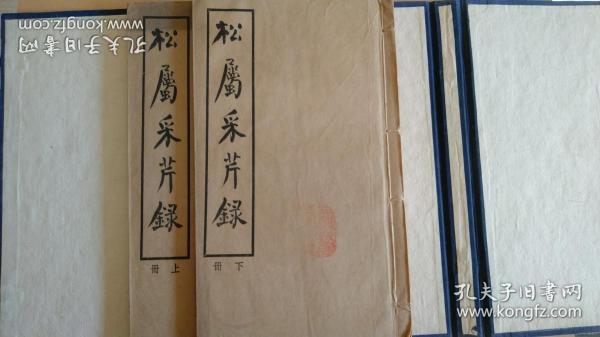 松屬采芹録
下冊
松屬采芹録
上冊
孔夫子旧书网
www.kongfz.com
孔夫子旧书网
www.kongfz.com